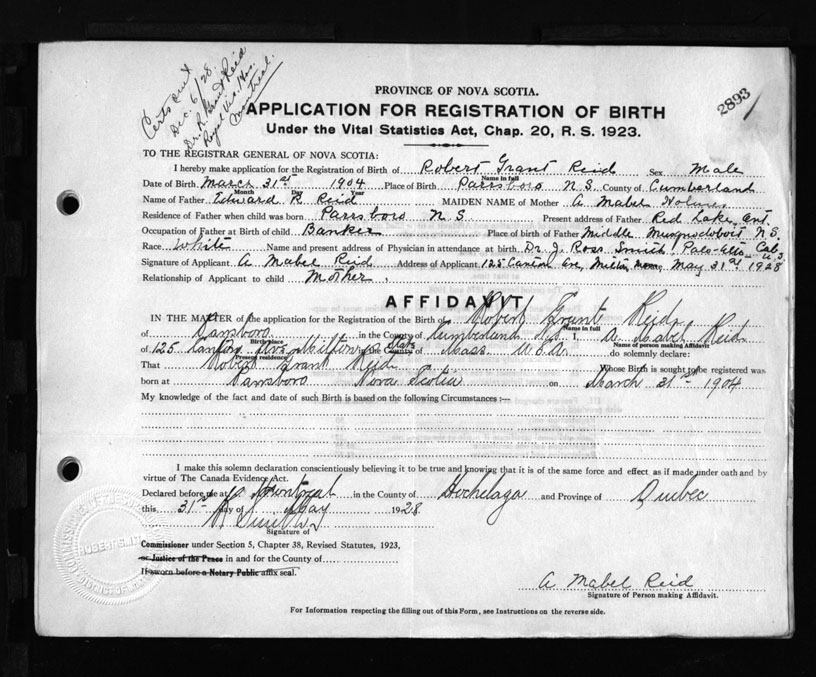 Certs sent
Dec. 6/28.
Dr. R. Grant Reid
Royal Vic. Hos.
Montreal.
2893
PROVINCE OF NOVA SCOTIA.
APPLICATION FOR REGISTRATION OF BIRTH
Under the Vital Statistics Act, Chap. 20, R. S. 1923.
TO THE REGISTRAR GENERAL OF NOVA SCOTIA:
I hereby make application for the Registration of Birth of Robert Grant Reid Sex Male
Name in full
Date of Birth March 31st 1904 Place of Birth Parrsboro N.S. County of Cumberland
Month Day Year
Name of Father Edward R. Reid MAIDEN NAME of Mother A Mabel Holmes
Residence of Father when child was born Parrsboro N S Present address of Father Red Lake, Ont
Occupation of Father at Birth of child Banker Place of birth of Father Middle Musquodoboit N.S.
Race White Name and present address of Physician in attendance at birth Dr. J. Ross Smith, Palo-Alto Cal U.S.
Signature of Applicant A Mabel Reid Address of Applicant 125 Canton Ave, Milton, Mass, May 31st 1928
Relationship of Applicant to child Mother.
AFFIDAVIT
IN THE MATTER of the application for the Registration of the Birth of Robert Grant Reid
Name in full
of Parrsboro in the County of Cumberland N.S. I, A. Mabel Reid
Birth Place Name of person making Affidavit
of 125 Canton Ave Milton in the County of State Mass U.S.A do solemnly declare:
Present residence
That Robert Grant Reid Whose Birth is sought to be registered was
born at Parrsboro Nova Scotia on March 31st 1904
My knowledge of the fact and date of such Birth is based on the following Circumstances :—
I make this solemn declaration conscientiously believing it to be true and knowing that it is of the same force and effect as if made under oath and by
virtue of The Canada Evidence Act.
Declared before me at Montreal in the County of Hochelaga and Province of Quebec
this 31st day of May 1928
Signature of
Commissioner under Section 5, Chapter 38, Revised Statutes, 1923,
or Justice of the Peace in and for the County of
If sworn before a Notary Public affix seal.
A Mabel Reid
Signature of Person making Affidavit.
For Information respecting the filling out of this Form, see Instructions on the reverse side.